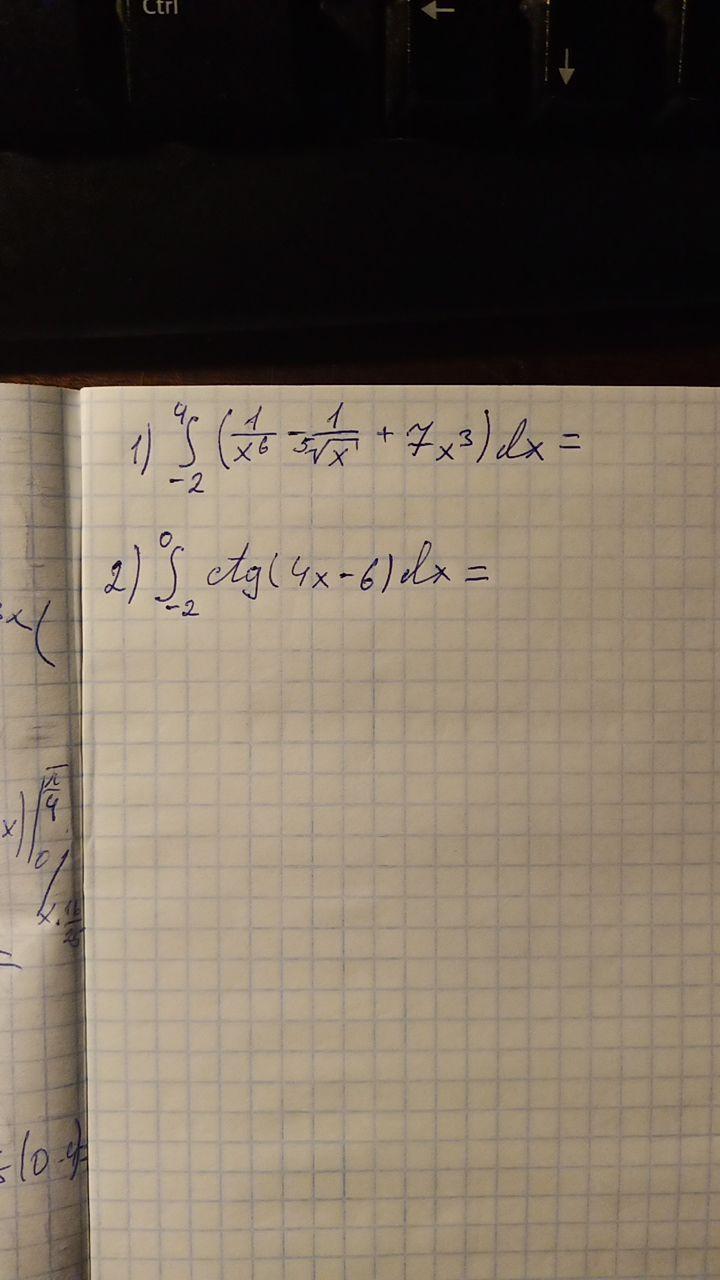 Ctrl
←
↓
1) ∫₋₂⁴ (1/x⁶ - 1/⁵√x + 7x³) dx =
2) ∫₋₂⁰ ctg(4x-6) dx =
x(
x) | π/4 0
=
(0-4)=